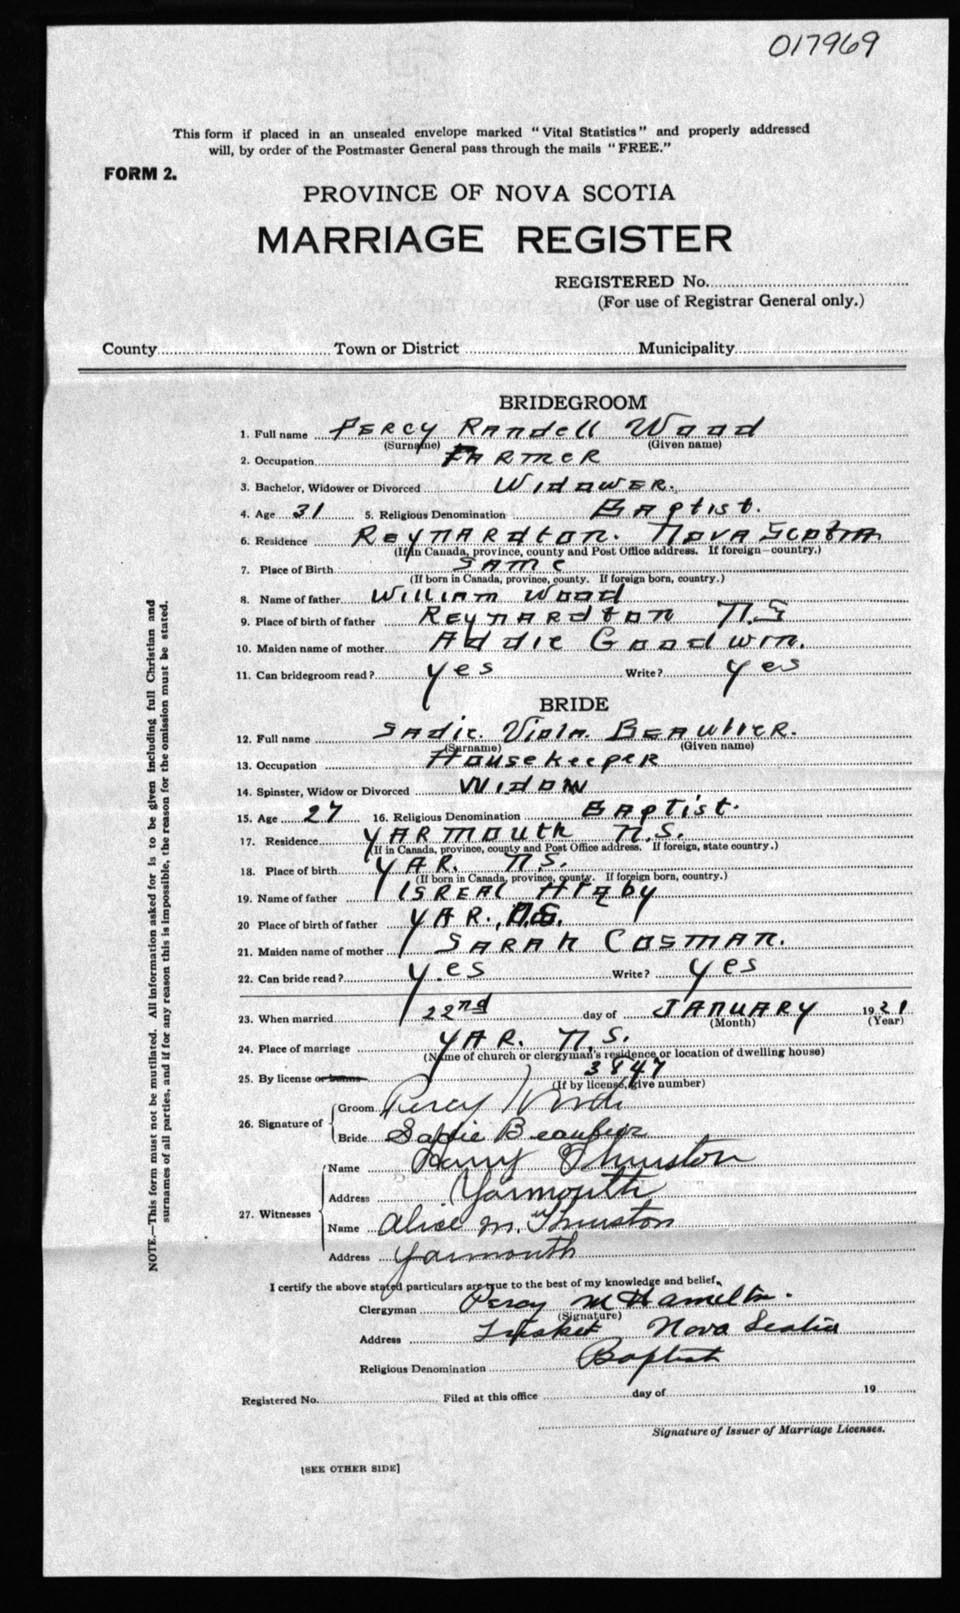 017969
This form if placed in an unsealed envelope marked "Vital Statistics" and properly addressed
will, by order of the Postmaster General pass through the mails "FREE."
FORM 2.
PROVINCE OF NOVA SCOTIA
MARRIAGE REGISTER
REGISTERED No.
(For use of Registrar General only.)
County Town or District Municipality
BRIDEGROOM
1. Full name Percy Randell Wood
(Surname) (Given name)
2. Occupation Farmer
3. Bachelor, Widower or Divorced Widower.
4. Age 31 5. Religious Denomination Baptist.
6. Residence Reynardton. Nova Scotia
(If in Canada, province, county and Post Office address. If foreign—country.)
7. Place of Birth same
(If born in Canada, province, county. If foreign born, country.)
8. Name of father William Wood
9. Place of birth of father Reynardton N.S
10. Maiden name of mother Addie Goodwin.
11. Can bridegroom read? yes Write? yes
BRIDE
12. Full name Sadie. Viola. Beaulier.
(Surname) (Given name)
13. Occupation Housekeeper
14. Spinster, Widow or Divorced Widow
15. Age 27 16. Religious Denomination Baptist.
17. Residence Yarmouth N.S.
(If in Canada, province, county and Post Office address. If foreign, state country.)
18. Place of birth Yar. N.S.
(If born in Canada, province, county. If foreign born, country.)
19. Name of father Isreal
20 Place of birth of father Yar., N.S.
21. Maiden name of mother Sarah Cosman.
22. Can bride read? yes Write? yes
23. When married 22nd day of January 1921
(Month) (Year)
24. Place of marriage Yar. N.S.
(Name of church or clergyman's residence or location of dwelling house)
25. By license or banns 3847
(If by license, give number)
26. Signature of
Groom Percy Wood
Bride Sadie
27. Witnesses
Name Harry Thurston
Address Yarmouth
Name Alice M. Thurston
Address Yarmouth
I certify the above stated particulars are true to the best of my knowledge and belief,
Clergyman Percy M Hamelton.
(Signature)
Address Tusket Nova Scotia
Religious Denomination Baptist
Registered No. Filed at this office day of 19
Signature of Issuer of Marriage Licenses.
[SEE OTHER SIDE]
NOTE.—This form must not be mutilated. All information asked for is to be given including full Christian and
surnames of all parties, and if for any reason this is impossible, the reason for the omission must be stated.